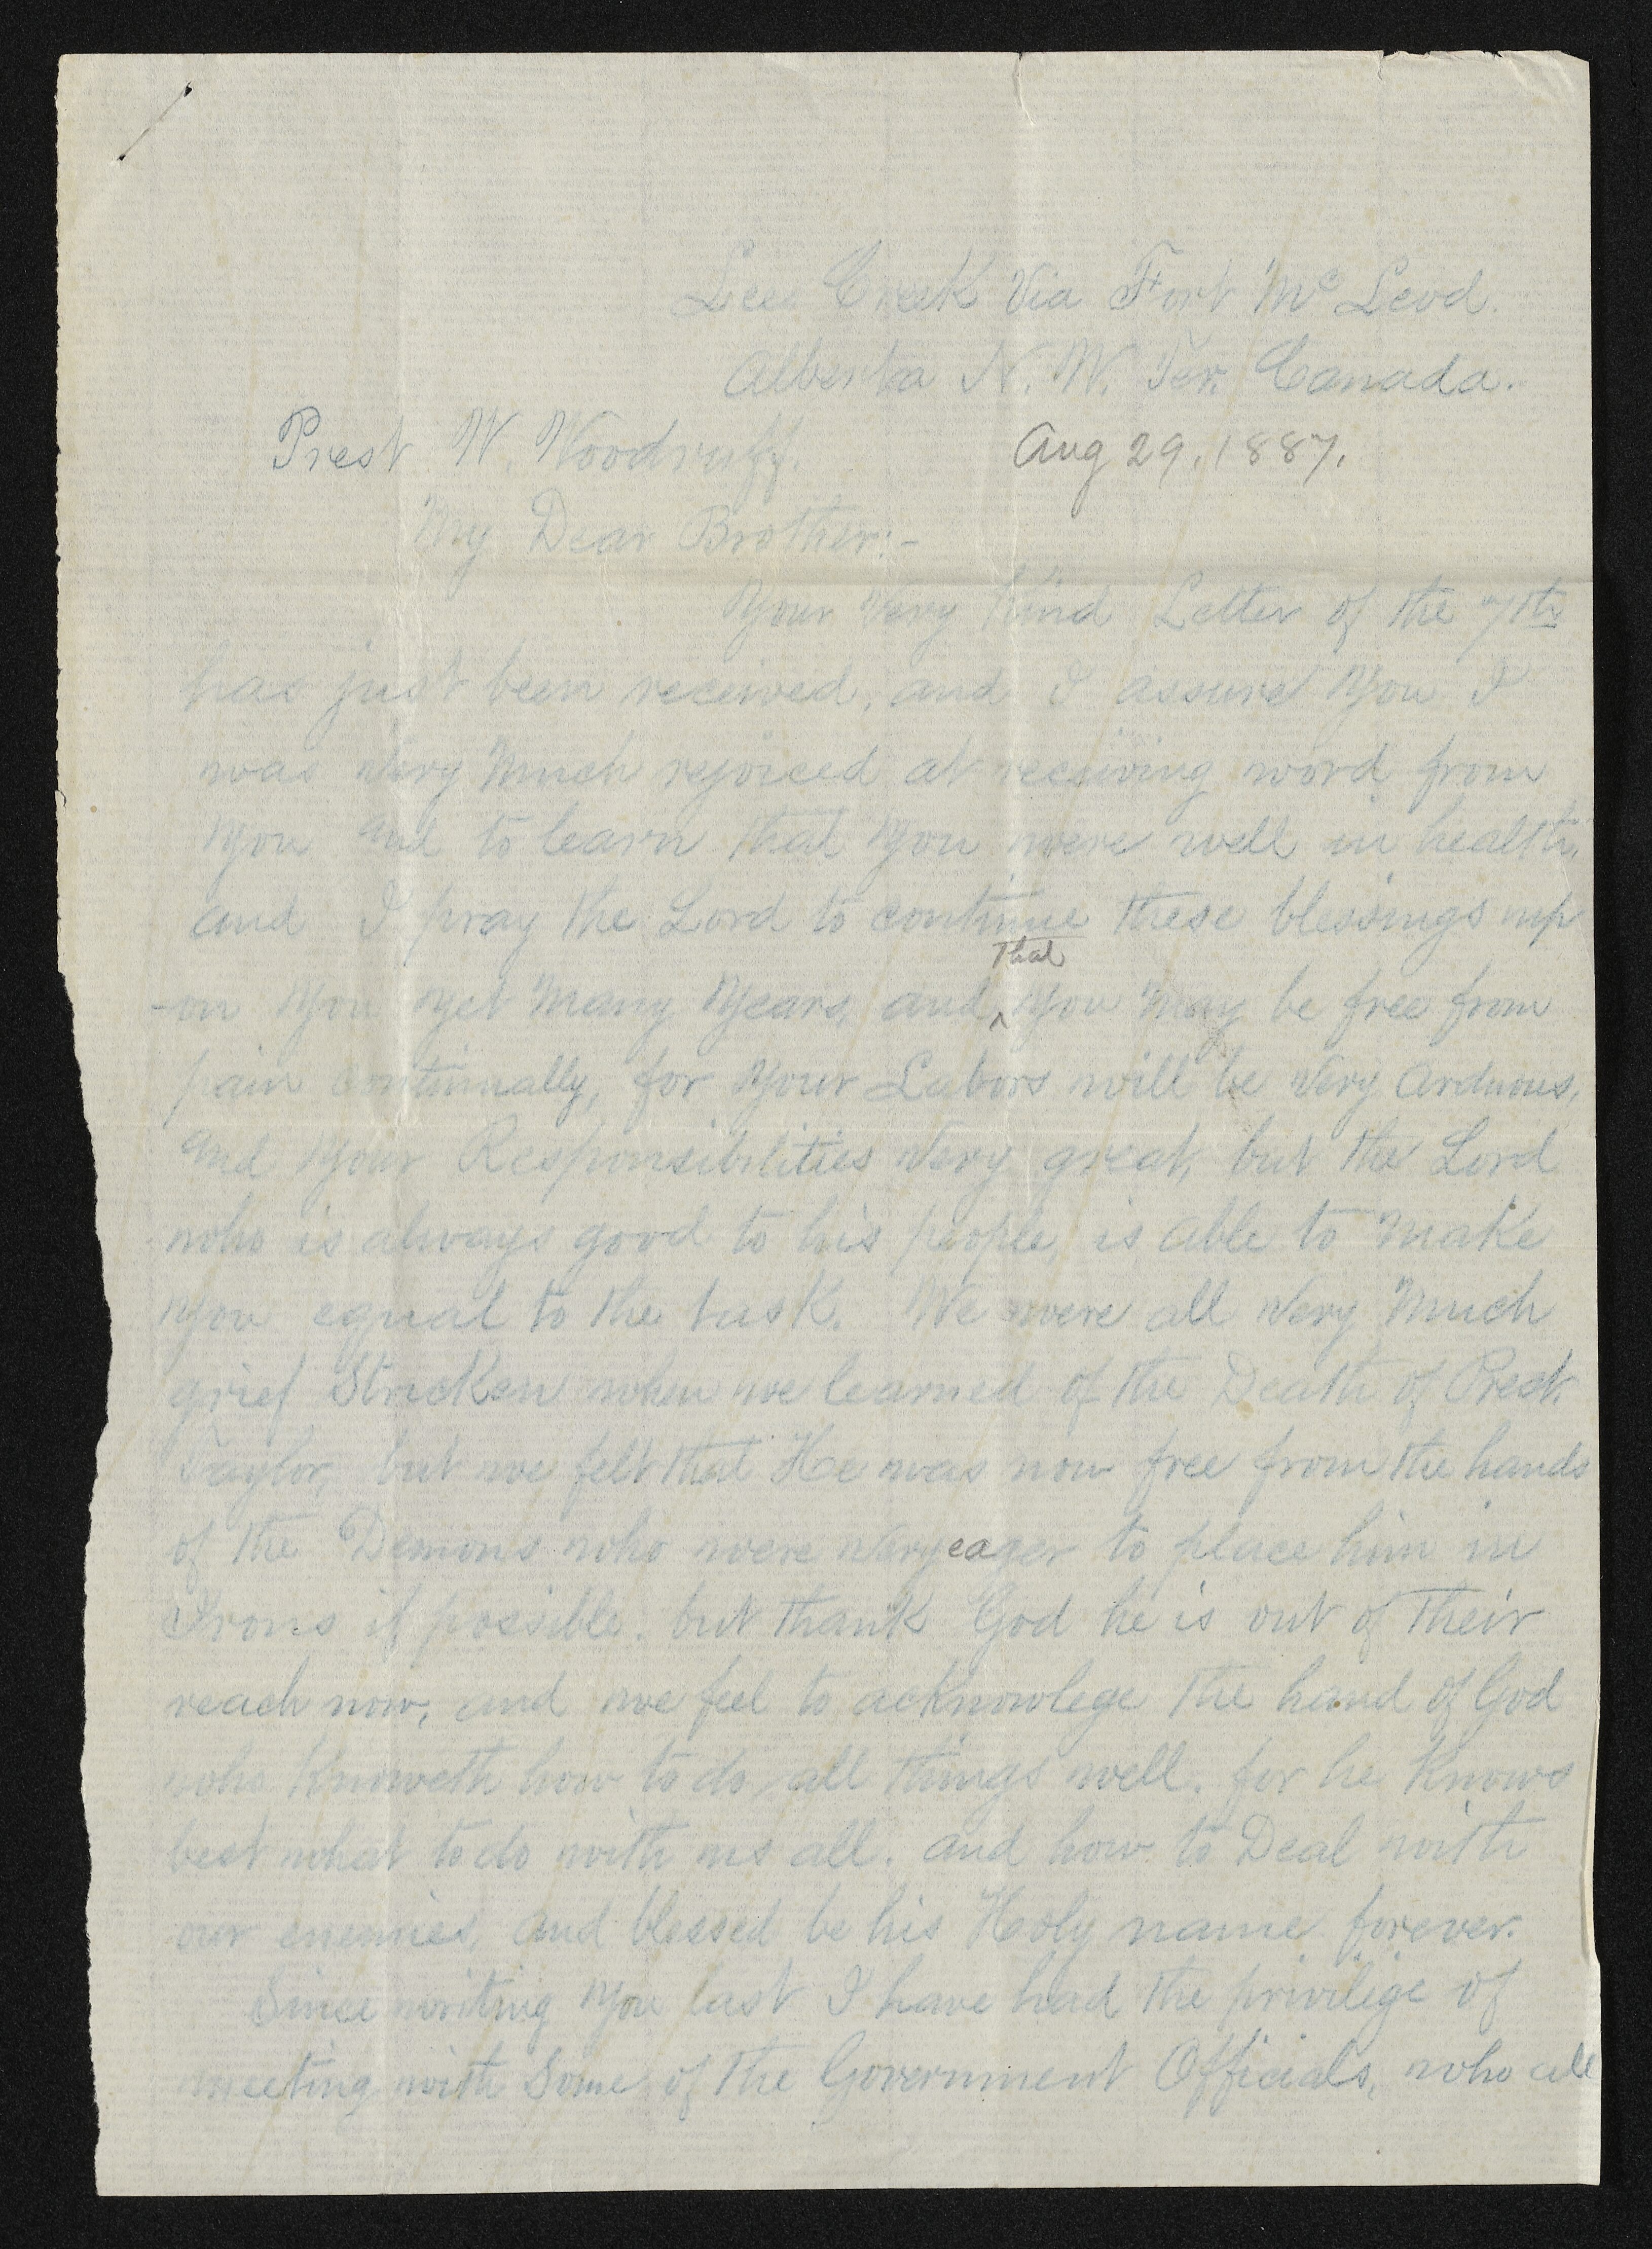 Lee Creek Via Fort Mc Leod.
Alberta N. W. Ter. Canada.
Prest W. Woodruff. Aug 29, 1887.
My Dear Brother:-
Your very kind Letter of the 7th
has just been received, and I assure you I
was very much rejoiced at receiving word from
you and to learn that you were well in health,
and I pray the Lord to continue these blessings up
-on you yet many years, and ^That you may be free from
pain continually, for your Labors will be very arduous,
and your Responsibilities very great, but the Lord
who is always good to his people, is able to make
you equal to the task. We were all very much
grief Stricken when we learned of the Death of Prest.
Taylor, but we felt that He was now free from the hands
of the Demons who were very eager to place him in
Irons if possible. but thank God he is out of their
reach now, and we feel to acknowlege the hand of God
who knoweth how to do all things well. for he knows
best what to do with us all. and how to Deal with
our enemies, and blessed be his Holy name forever.
Since writing you last I have had the privilige of
meeting with Some of the Government Officials, who all